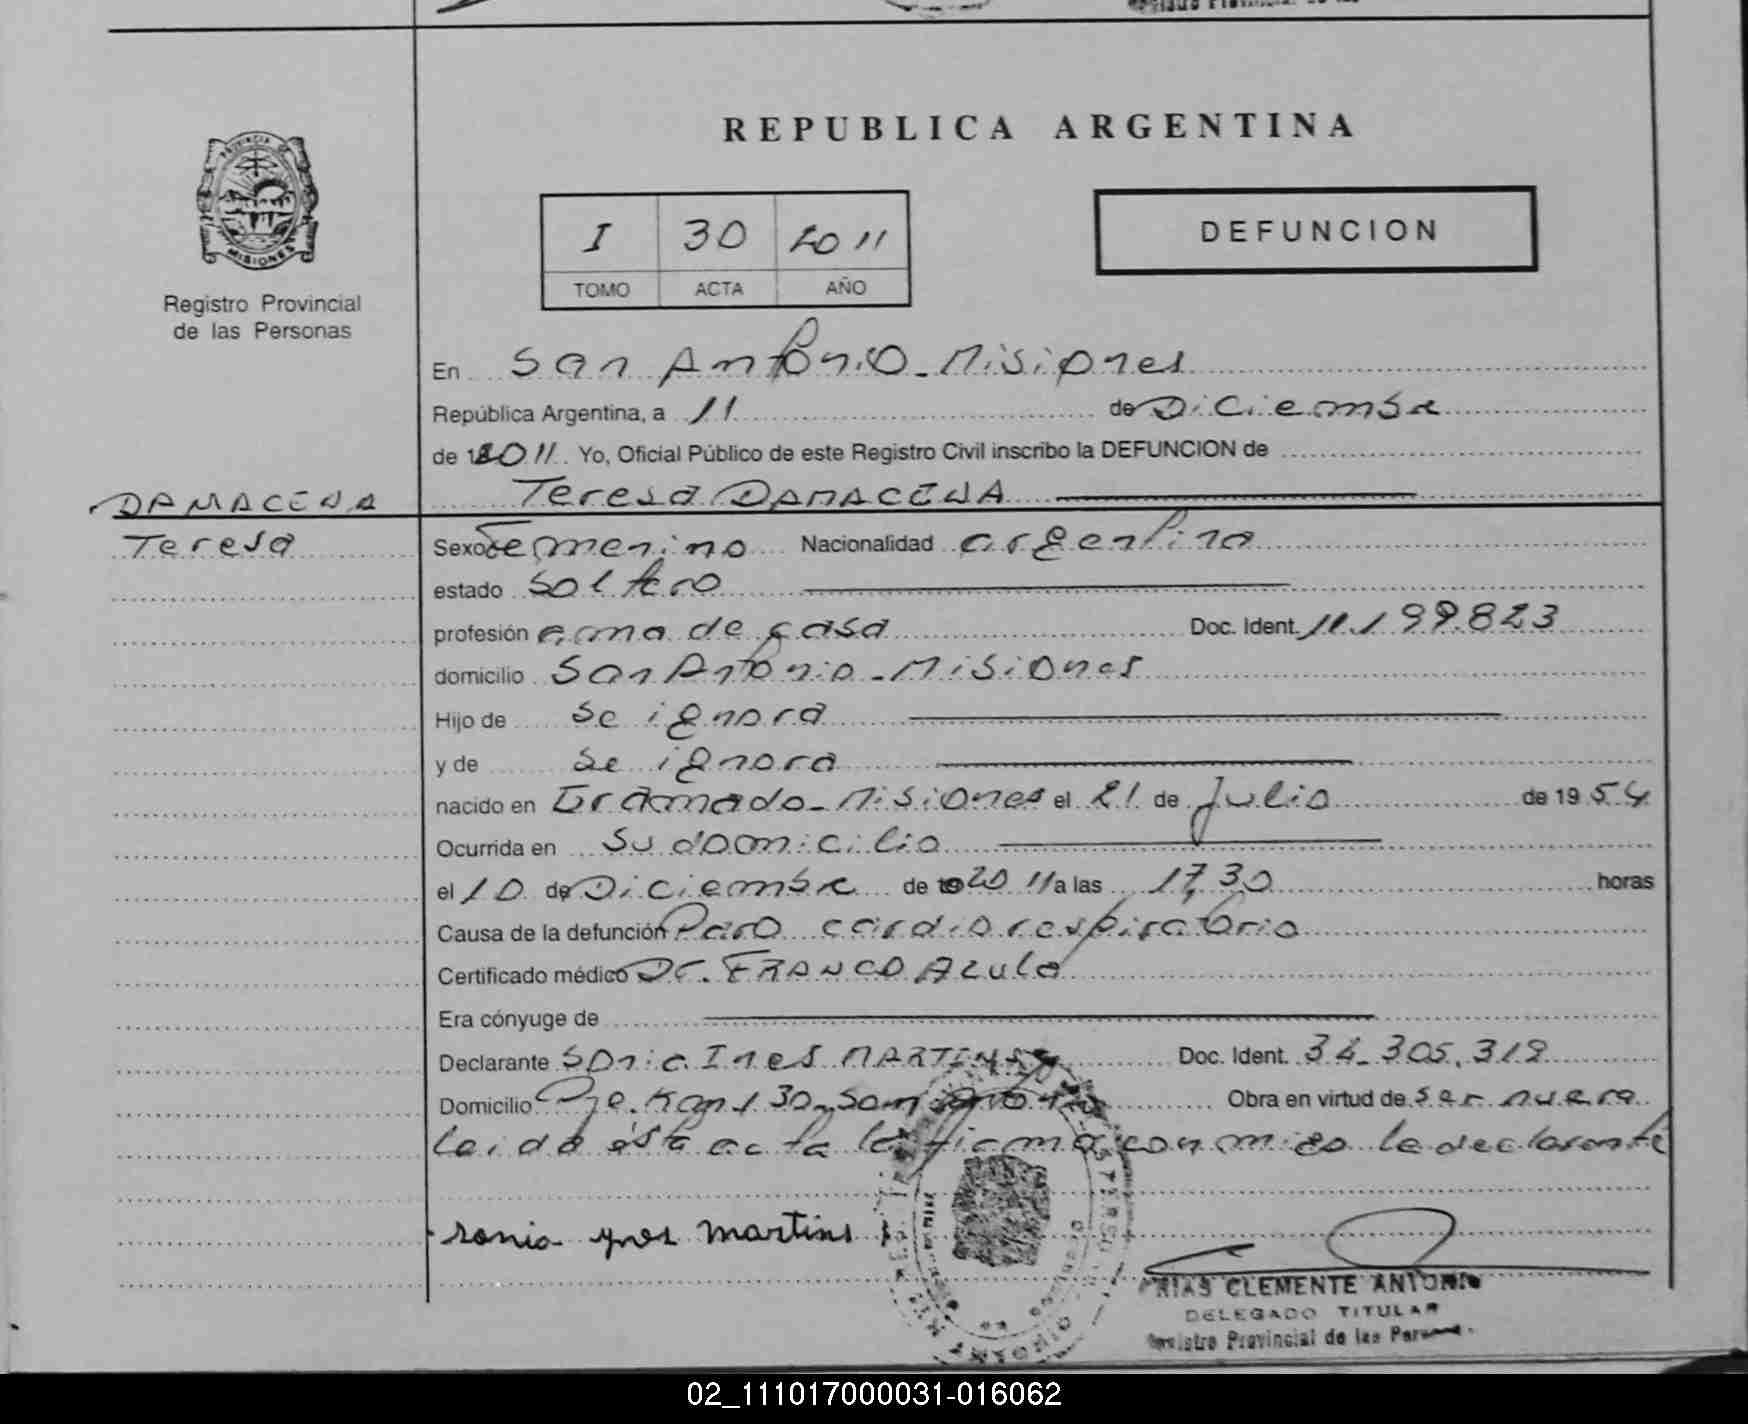 REPUBLICA ARGENTINA
PROVINCIA DE
MISIONES
Registro Provincial
de las Personas
I 30 2011
TOMO ACTA AÑO
DEFUNCION
En San Antonio - Misiones
República Argentina, a 11 de Diciembre
de 2011 Yo, Oficial Público de este Registro Civil inscribo la DEFUNCION de
Teresa DAMACENA
DAMACENA
Teresa
Sexo Femenino Nacionalidad argentina
estado soltero
profesión ama de casa Doc. Ident. 11.199.823
domicilio San Antonio - Misiones
Hijo de se ignora
y de se ignora
nacido en Gramado - Misiones el 21 de Julio de 1954
Ocurrida en su domicilio
el 10 de Diciembre de 2011 a las 17,30 horas
Causa de la defunción Paro cardiorespiratorio
Certificado médico Dr. FRANCO Azula
Era cónyuge de
Declarante Sonia Ines MARTINS Doc. Ident. 34.305.312
Domicilio Pje. 30 San Antonio Obra en virtud de ser nuera
Leida ésta acta la firma con migo la declarante
sonia ynes martins
FRIAS CLEMENTE ANTONIO
DELEGADO TITULAR
Registro Provincial de las Personas
02_111017000031-016062